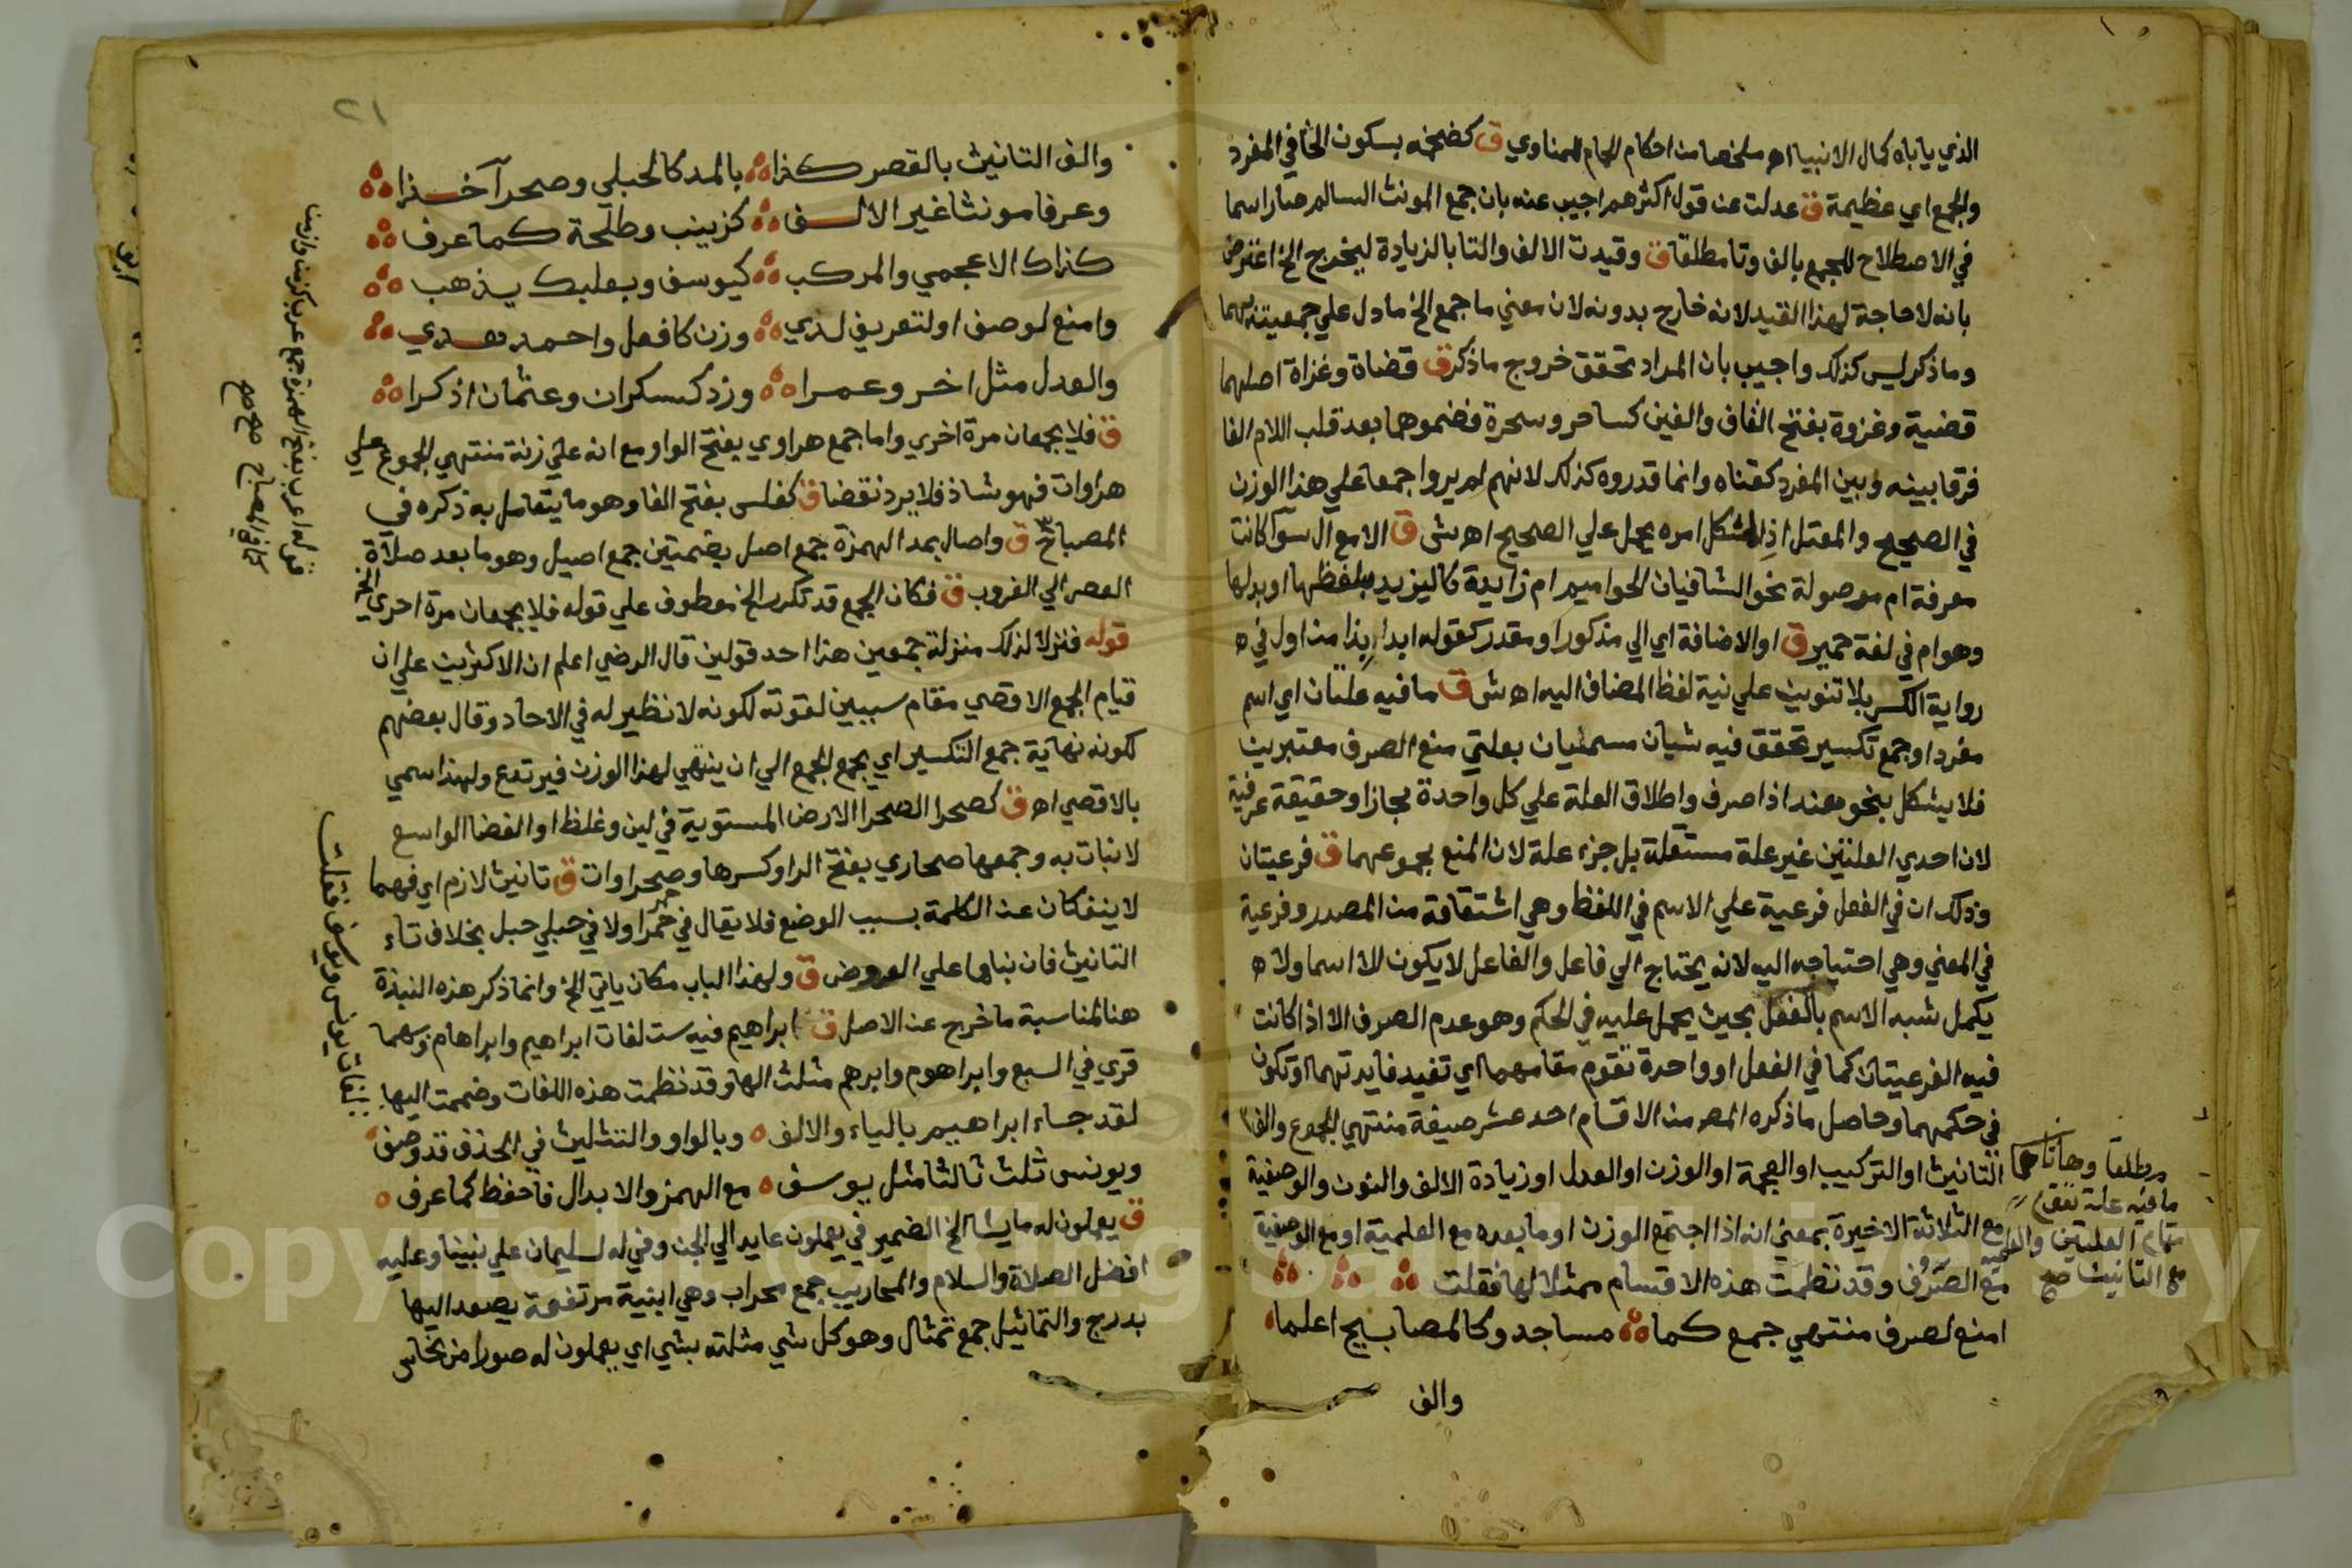 الذي ياباه كمال الانبيا اه ملخصا من احكام الحمام للمناوي ق كضخمه بسكون الخا في المفرد
والجمع اي عظيمة ق عدلت عن قول اكثرهم اجيب عنه بان جمع المونث السالم صار اسما
في الاصطلاح للجمع بالف وتا مطلقا ق وقيدت الالف والتا بالزيادة ليخرج الخ اعترض
بانه لا حاجة لهذا القيد لانه خارج بدونه لان معني ما جمع الخ ما دل علي جمعيته بهما
وما ذكر ليس كذلك واجيب بان المراد تحقق خروج ما ذكر ق قضاة وغزاة اصلهما
قضية وغزوة بفتح القاف والغين كساحر وسحرة فضموهما بعد قلب اللام الفا
فرقا بينه وبين المفرد كقناه وانما قدروه كذلك لانهم لم يروا جمعا علي هذا الوزن
في الصحيح والمعتل اذا اشكل امره يحمل علي الصحيح اه ش ق الا مع ال سوا كانت
معرفة ام موصولة نحو الشافيان الحوايم ام زايدة كاليزيد بلفظها او بدلها
وهو ام في لغة حمير ق او الاضافة اي الي مذكور او مقدر كقوله ابدا بذا من اول في ه
رواية الكسر بلا تنوين علي نية لفظ المضاف اليه اه ش ق ما فيه علتان اي اسم
مفرد او جمع تكسير تحقق فيه شيان مسميان بعلتي منع الصرف معتبرين
فلا يشكل بنحو هند اذا صرف واطلاق العلة علي كل واحدة مجازا وحقيقة عرفية
لان احدي العلتين غير علة مستقلة بل جزء علة لان المنع بمجموعهما ق فرعيتان
وذلك ان في الفعل فرعية علي الاسم في اللفظ وهي اشتقاقه من المصدر وفرعية
في المعني وهي احتياجه اليه لانه يحتاج الي فاعل والفاعل لا يكون الا اسما ولا ه
يكمل شبه الاسم بالفعل بحيث يحمل عليه في الحكم وهو عدم الصرف الا اذا كانت
فيه الفرعيتان كما في الفعل او واحدة تقوم مقامهما اي تفيد فايدتهما وتكون
في حكمهما وحاصل ما ذكره المصر من الاقسام احد عشر صيغة منتهي الجموع والف
التانيث او التركيب او العجمة او الوزن او العدل او زيادة الالف والنون والوصفية
مع الثلاثة الاخيرة بمعني انه اذا اجتمع الوزن او ما بعده مع العلمية او مع الوصفية
منع الصرف وقد نظمت هذه الاقسام ممثلا لها فقلت
امنع لصرف منتهي جمع كما مساجد وكالمصابيح اعلما
والف
مطلقا وهاتان
ما فيه علة تقوم
مقام العلتين والعلمية
مع التانيث صح
٢١
والف التانيث بالقصر كذا بالمد كالحبلي وصحرا آخذا
وعرفا مونثا غير الالف كزينب وطلحة كما عرف
كذاك الاعجمي والمركب كيوسف وبعلبك يذهب
وامنع لوصف او لتعريف لذي وزن كافعل واحمد هدي
والعدل مثل اخر وعمرا وزد كسكران وعثمان اذكرا
ق فلا يجمعان مرة اخري واما جمع هراوي بفتح الواو مع انه علي زنة منتهي الجموع علي
هراوات فهو شاذ فلا يرد نقضا ق كفلس بفتح الفا وهو ما يتعامل به ذكره في
المصباح ق واصال بمد الهمزة جمع اصل بضمتين جمع اصيل وهو ما بعد صلاة
العصر الي الغروب ق فكان الجمع قد تكرر الخ معطوف علي قوله فلا يجمعان مرة اخري الخ
قوله فنزلا لذلك منزلة جمعين هذا احد قولين قال الرضي اعلم ان الاكثرين علي ان
قيام الجمع الاقصي مقام سببين لقوته لكونه لا نظير له في الاحاد وقال بعضهم
لكونه نهاية جمع التكسير اي يجمع الجمع الي ان ينتهي لهذا الوزن فيرتفع ولهذا سمي
بالاقصي اه ق كصحرا الصحرا الارض المستوية في لين وغلظ او الفضا الواسع
لا نبات به وجمعها صحاري بفتح الرا وكسرها وصحراوات ق تانيث لازم اي فهما
لا ينفكان عن الكلمة بسبب الوضع فلا يقال في حمرا حمر ولا في حبلي حبل بخلاف تاء
التانيث فان بناها علي العروض ق ولهذا الباب مكان ياتي الخ وانما ذكر هذه النبذة
هنا لمناسبة ما خرج عن الاصل ق ابراهيم فيه ست لغات ابراهيم وابراهام وبهما
قري في السبع وابراهوم وابرهم مثلث الها وقد نظمت هذه اللغات وضممت اليها
لقد جاء ابراهيم بالياء والالف وبالواو والتثليث في الحذف قد وصف
ويونس ثلث ثالثا مثل يوسف مع الهمز والابدال فاحفظ كما عرف
ق يعملون له ما يشا الخ الضمير في يعملون عايد الي الجن وفي له لسليمان علي نبينا وعليه
افضل الصلاة والسلام والمحاريب جمع محراب وهي ابنية مرتفعة يصعد اليها
بدرج والتماثيل جمع تمثال وهو كل شي مثلته بشي اي يعملون له صورا من نحاس
قوله اعرب بفتح الهمزة جمع عرب كزمن وازمن
كما في المصباح صح صح
لغات يونس ويوسف فقلت